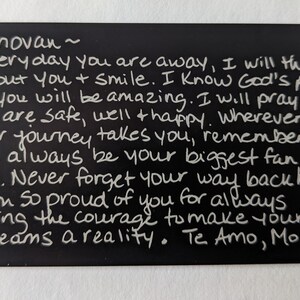 novan ~
everyday you are away, I will th
out you + smile. I know God's p
you will be amazing. I will pray
are safe, well + happy. Wherever
r journey takes you, remembe
always be your biggest fan
. Never forget your way back h
m so proud of you for always
ing the courage to make your
eams a reality. Te Amo, Mo